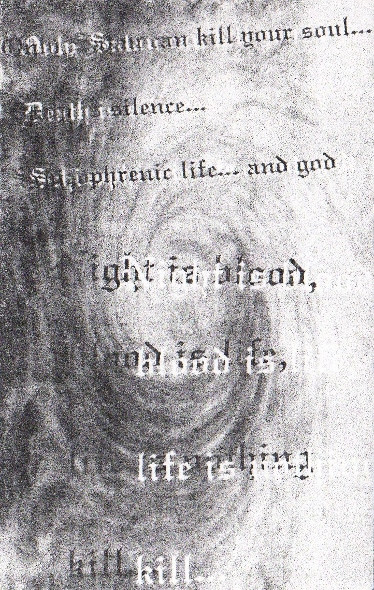 Only can kill your soul...
Death silence...
life... and god
is blood,
blood is life,
life is nothing
kill kill...